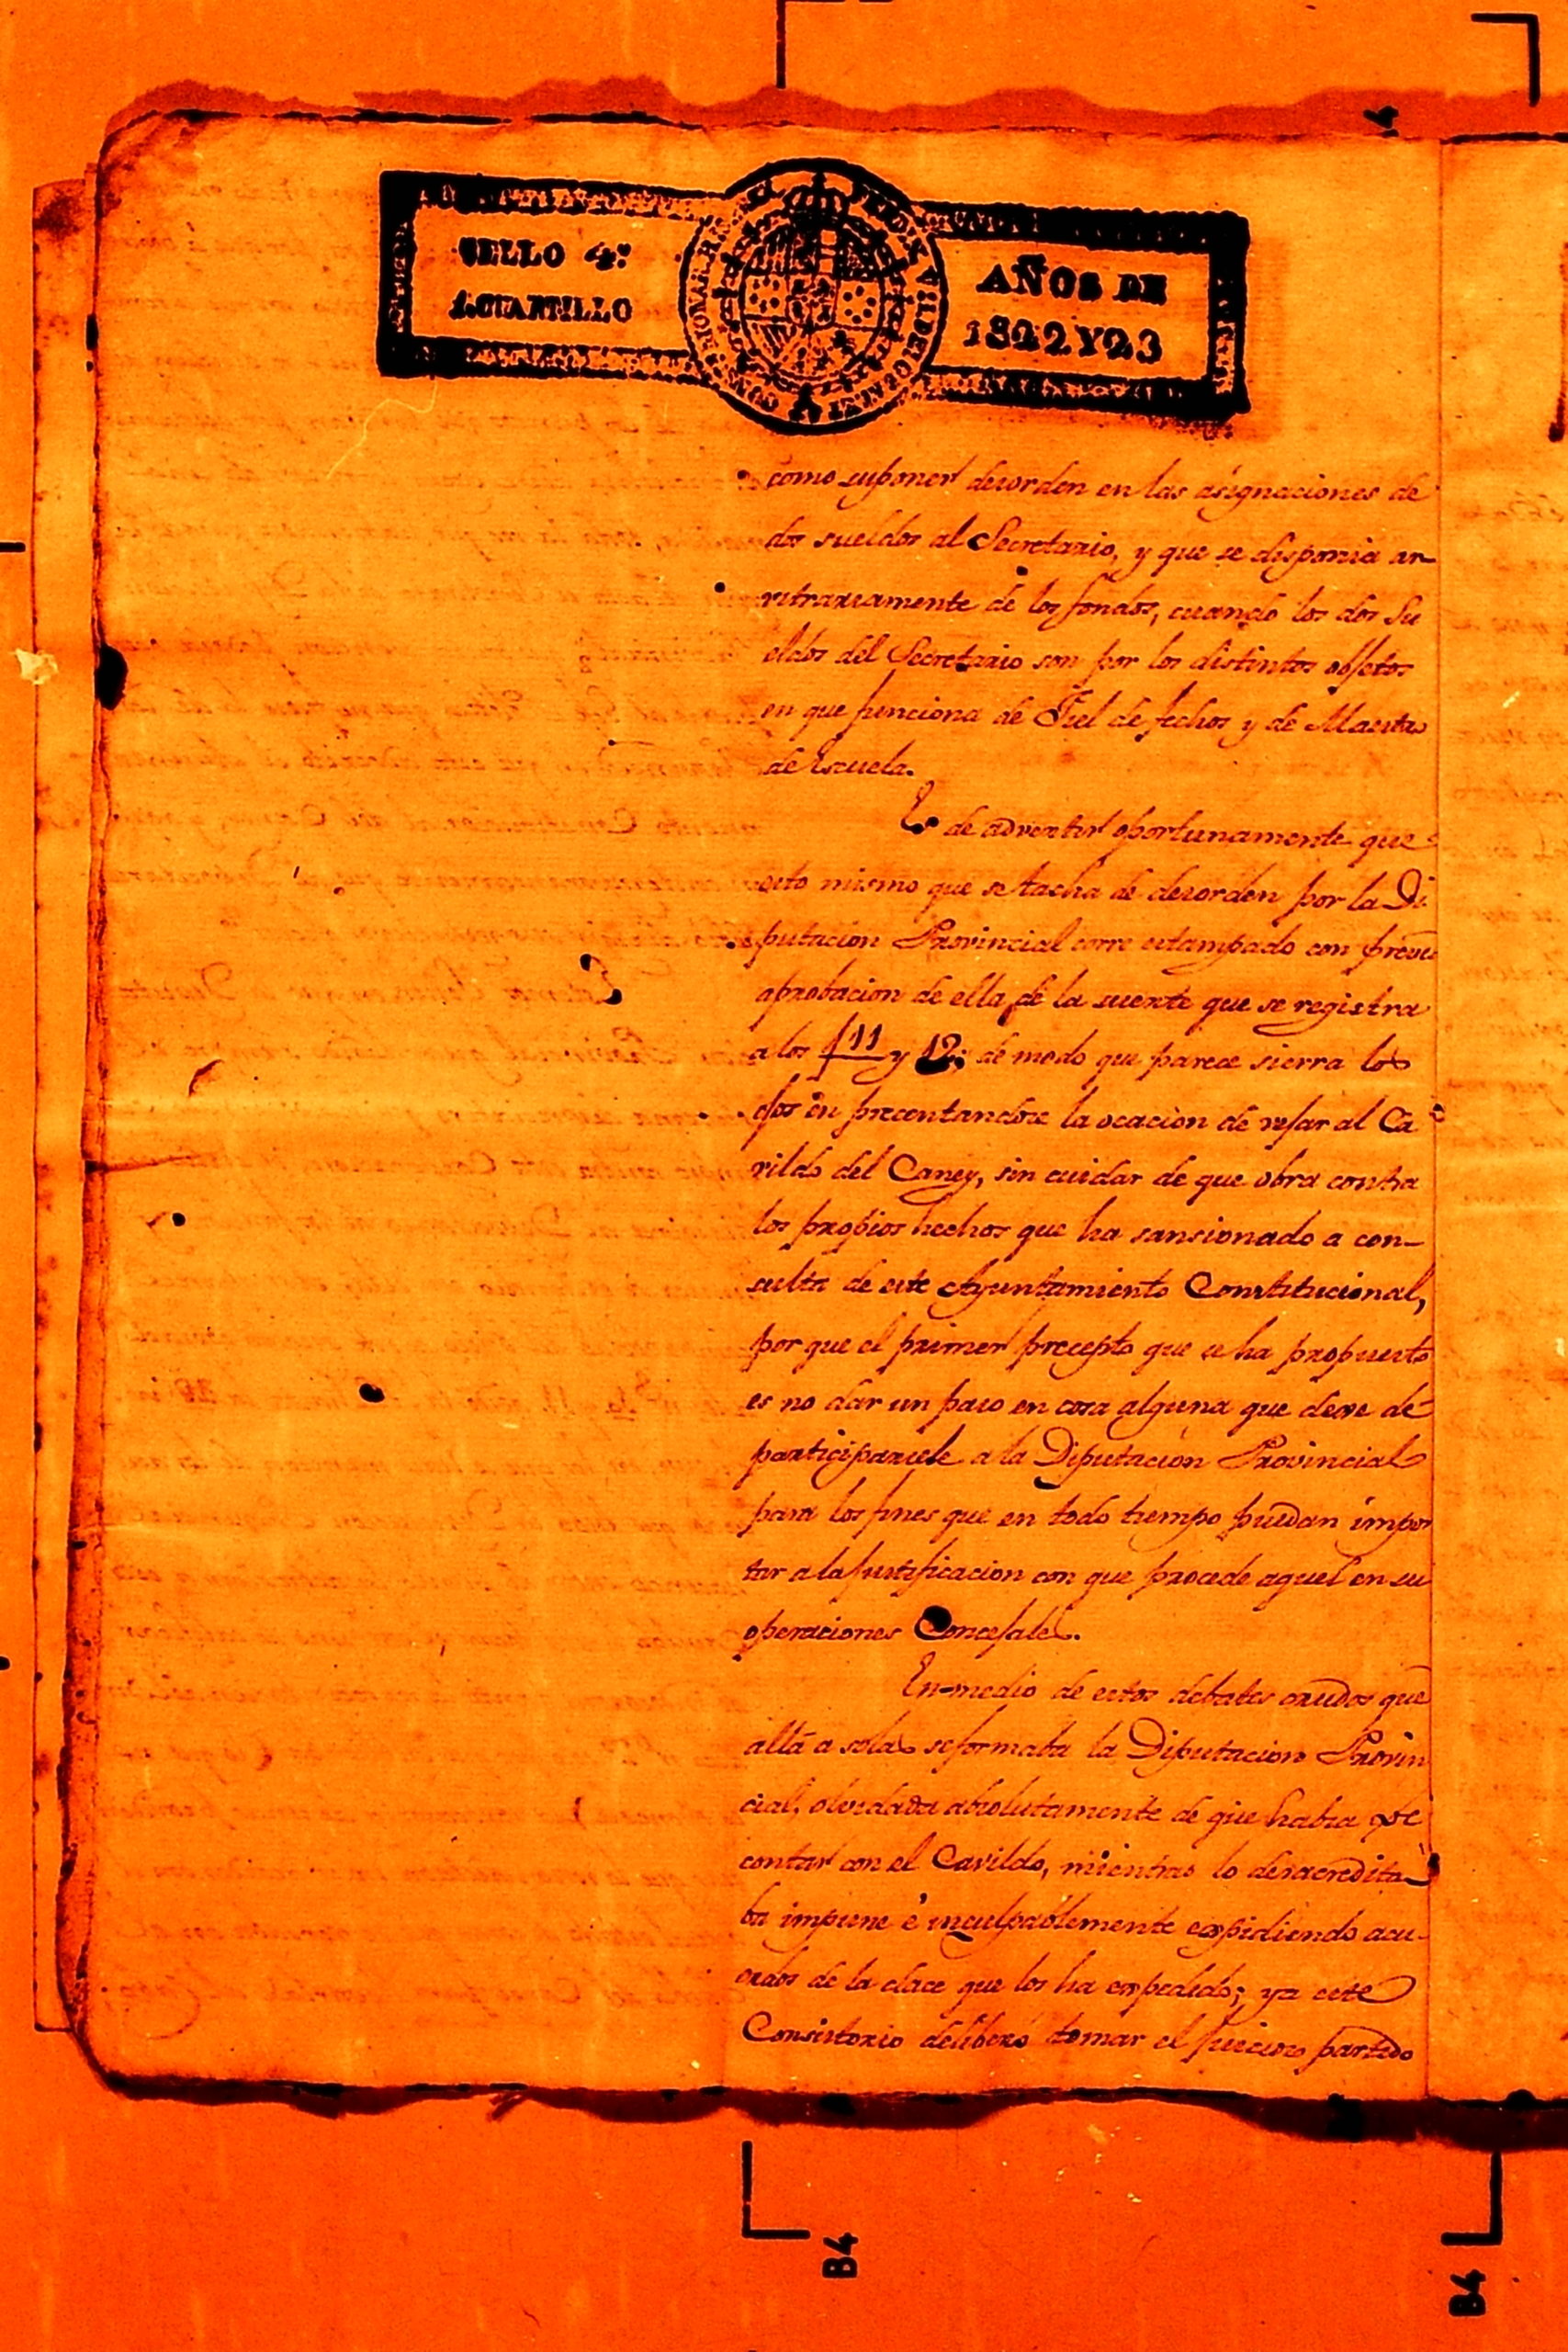 SELLO 4º
1.CUARTILLO
AÑOS DE
1822 Y 23
como suponer desorden en las asignaciones de
dos sueldos al Secretario, y que se disponia ar-
vitrariamente de los fondos, cuando los dos Su
eldos del Secretario son por los distintos objetos
en que funciona de Fiel de fechos y de Maestro
de Escuela.
Es de advertir oportunamente que
esto mismo que se tacha de desorden por la Di
putacion Provincial corre estampado con previa
aprobacion de ella, de la suerte que se registra
a los f 11 y 12; de modo que parece sierra los
ojos en precentandose la ocacion de vejar al Ca
vildo del Caney, sin cuidar de que obra contra
los propios hechos que ha sansionado a con-
sulta de este Ayuntamiento Constitucional,
por que el primer precepto que se ha propuesto
es no dar un paso en cosa alguna que deve de
participarsele a la Diputacion Provincial
para los fines que en todo tiempo puedan impor
tar a la justificacion con que procede aquel en su
operaciones Concejales.
En medio de estos debates crudos que
allá a solas se formaba la Diputacion Provin
cial, olvidada absolutamente de que habia de
contar con el Cavildo, mientras lo desacredita
ba impune é inculpablemente expidiendo acu-
erdos de la clace que los ha expedido; ya este
Consistorio deliberó tomar el juicioso partido
B4
B4